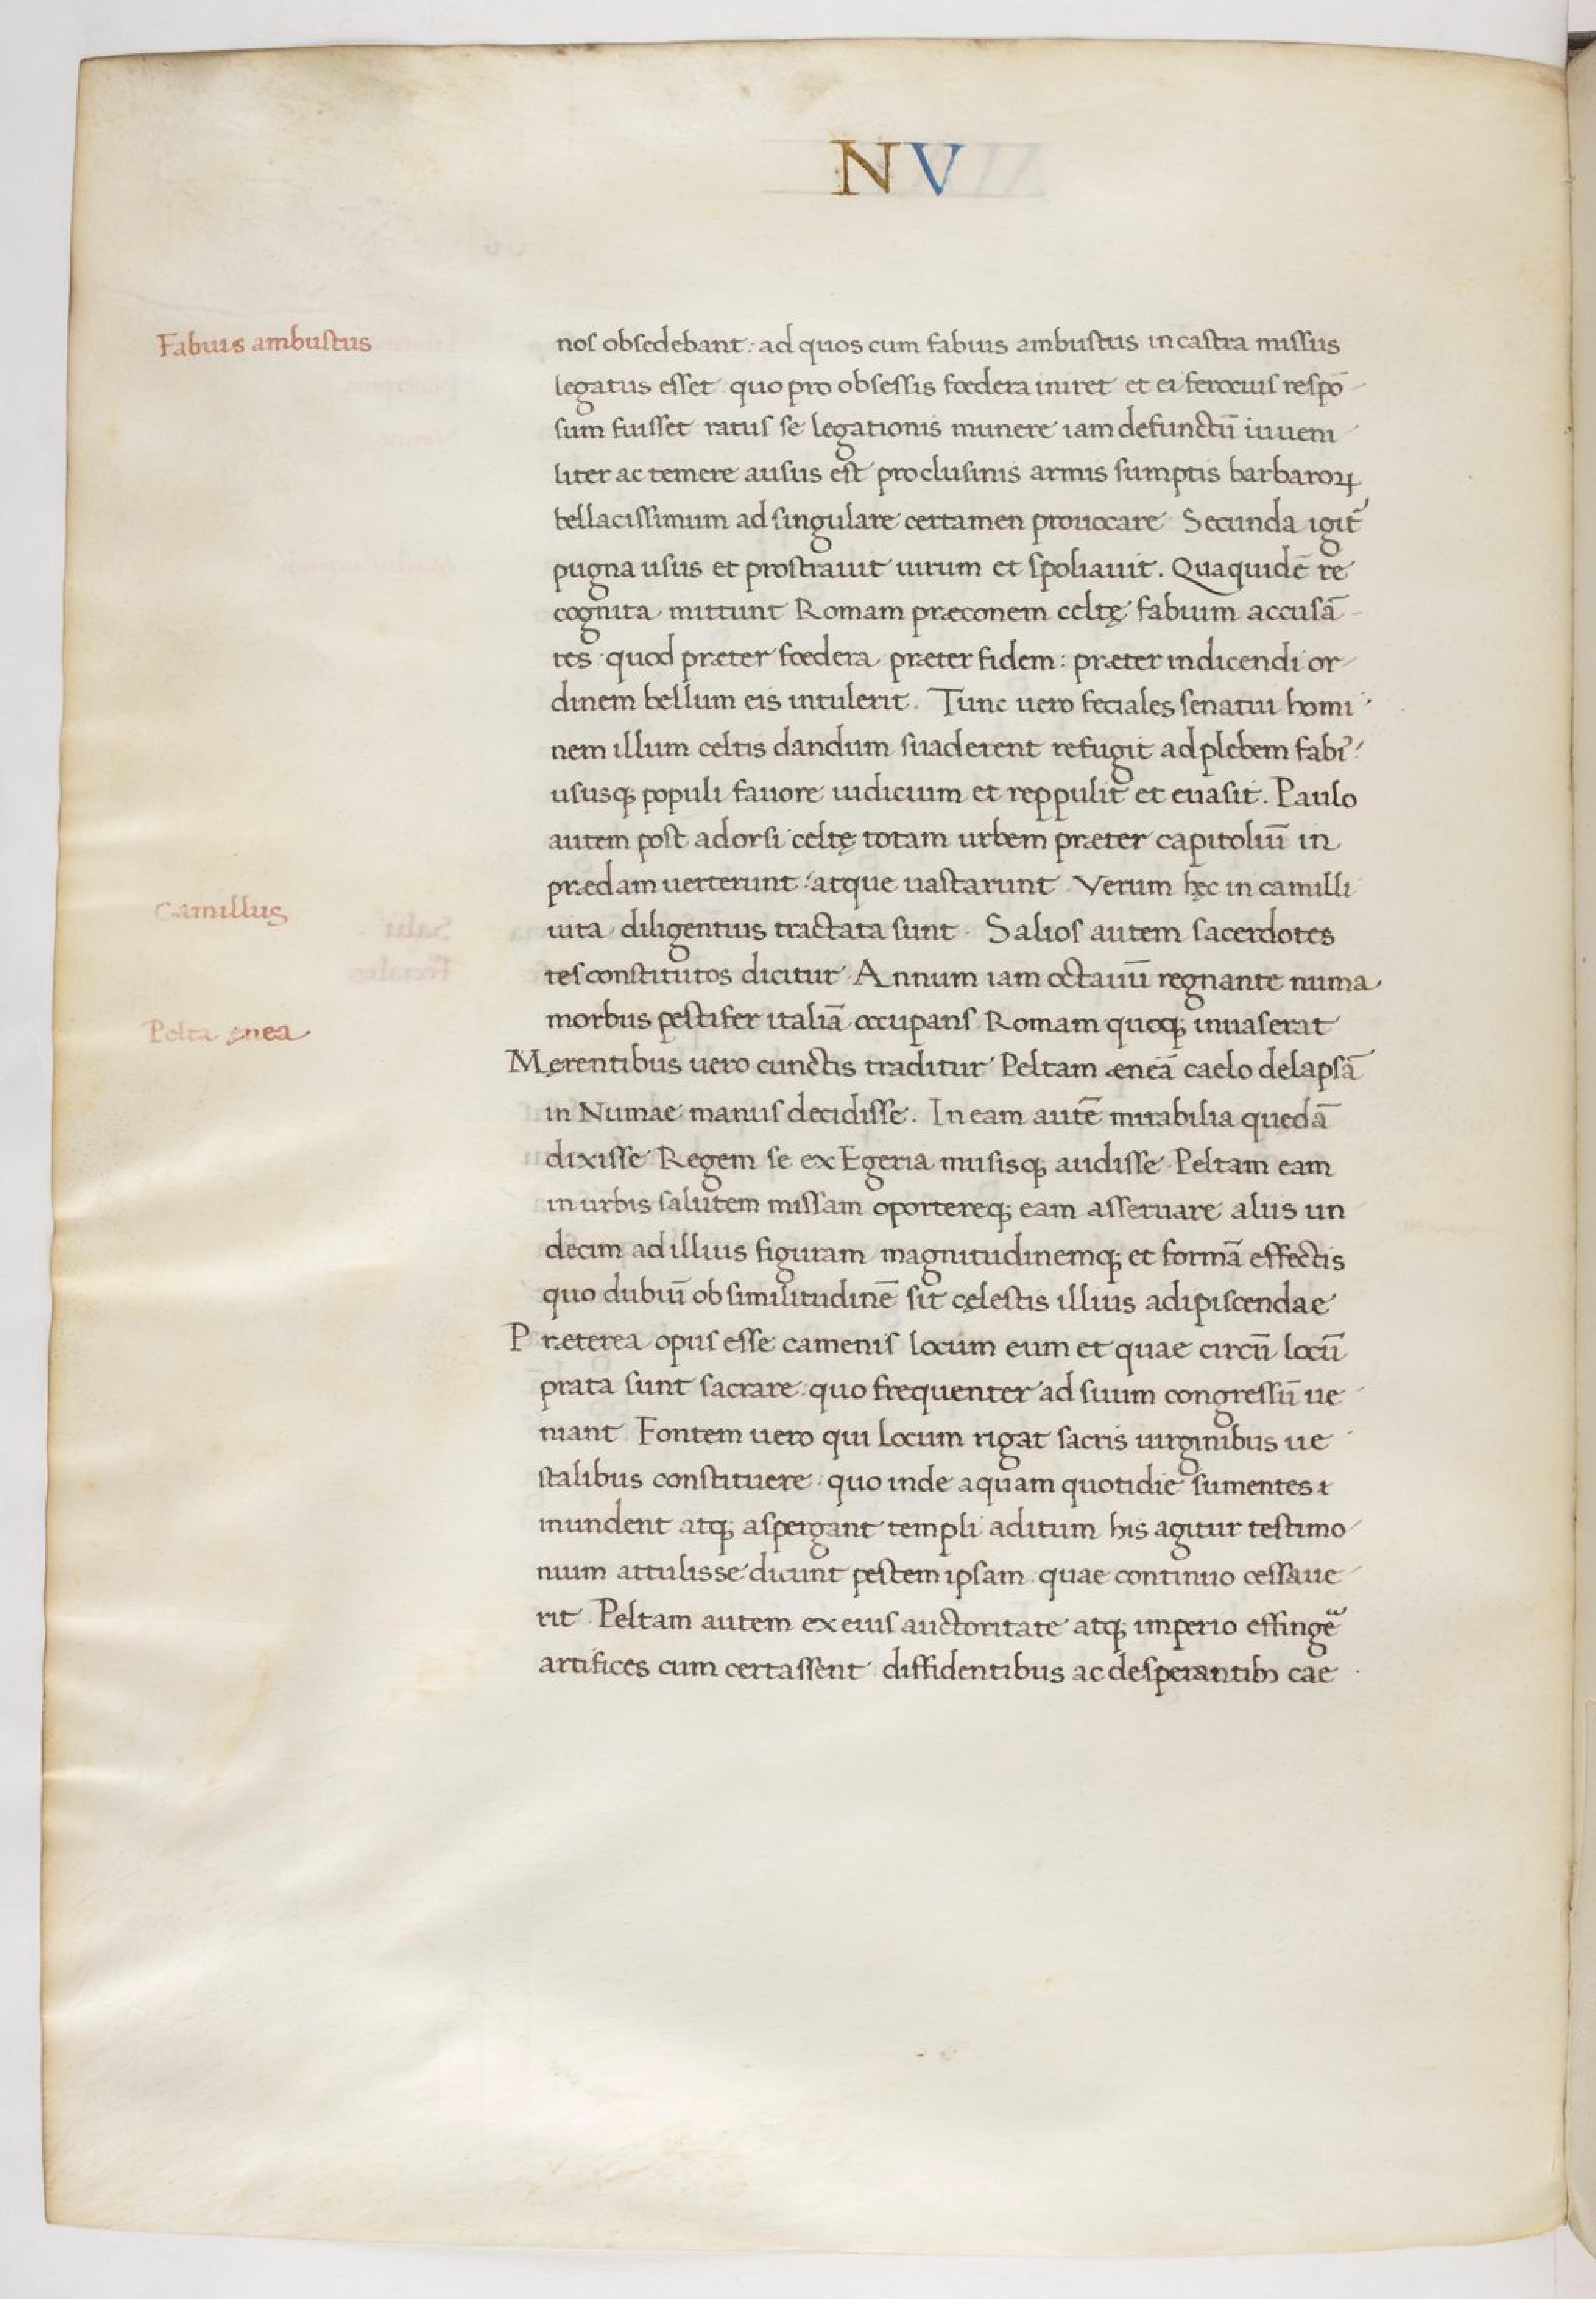 NV
Fabius ambustus
nos obsedebant: ad quos cum fabius ambustus in castra missus
legatus esset quo pro obsessis fœdera iniret et ei ferocius respō
sum fuisset ratus se legationis munere iam defunctū iuueni
liter ac temere ausus est pro clusinis armis sumptis barbaroꝝ
bellacissimum ad singulare certamen prouocare Secunda igit᷑
pugna usus et prostrauit uirum et spoliauit. Qua quidē re
cognita mittunt Romam præconem celtę fabium accusā
tes quod præter fœdera præter fidem: præter indicendi or
dinem bellum eis intulerit. Tunc uero feciales senatui homi
nem illum celtis dandum suaderent refugit ad plebem fabiꝰ
ususqꝫ populi fauore iudicium et reppulit et euasit. Paulo
autem post adorsi celtę totam urbem præter capitoliū in
prædam uerterunt: atque uastarunt Verum hęc in camilli
Camillus
uita diligentius tractata sunt. Salios autem sacerdotes
tes constitutos dicitur Annum iam octauū regnante numa
Pelta ęnea
morbus pestifer italiā occupans Romam quoqꝫ inuaserat
Męrentibus uero cunctis traditur Peltam æneā caelo delapsā
in Numae manus decidisse. In eam autē mirabilia quedā
dixisse Regem se ex Egeria musisqꝫ audisse Peltam eam
in urbis salutem missam oportereqꝫ eam asseruare aliis un
decim ad illius figuram magnitudinemqꝫ et formā effectis
quo dubiū ob similitudinē sit cęlestis illius adipiscendae
Præterea opus esse camenis locum eum et quae circū locū
prata sunt sacrare quo frequenter ad suum congressū ue
niant Fontem uero qui locum rigat sacris uirginibus ue
stalibus constituere quo inde aquam quotidie sumentes &
mundent atqꝫ aspergant templi aditum his agitur testimo
nium attulisse dicunt pestem ipsam quae continuo cessaue
rit Peltam autem ex eius auctoritate atqꝫ imperio effingē
artifices cum certassent diffidentibus ac desperantibꝫ cae